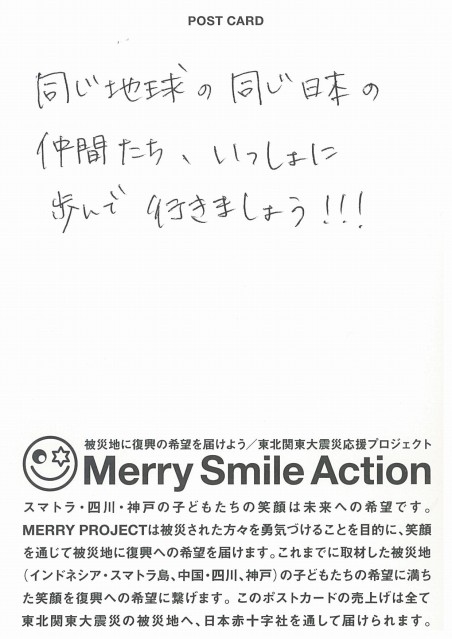 POST CARD
同じ地球の同じ日本の
仲間たち、いっしょに
歩んで行きましょう!!!
被災地に復興の希望を届けよう／東北関東大震災応援プロジェクト
Merry Smile Action
スマトラ・四川・神戸の子どもたちの笑顔は未来への希望です。
MERRY PROJECTは被災された方々を勇気づけることを目的に、笑顔
を通じて被災地に復興への希望を届けます。これまでに取材した被災地
（インドネシア・スマトラ島、中国・四川、神戸）の子どもたちの希望に満ち
た笑顔を復興への希望に繋げます。このポストカードの売上げは全て
東北関東大震災の被災地へ、日本赤十字社を通して届けられます。